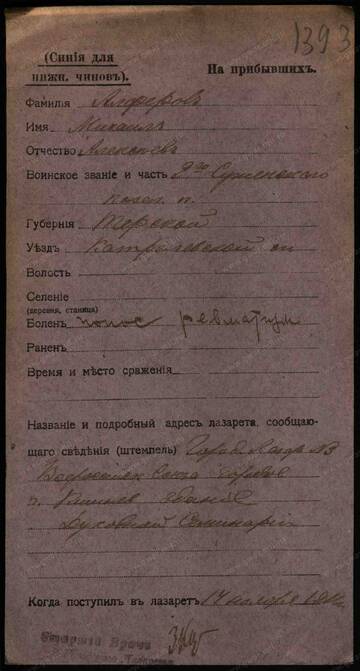 1393
(Синія для
нижн. чиновъ).
На прибывшихъ.
Фамилія Алферовъ
Имя Михаилъ
Отчество Алексѣевъ
Воинское званіе и часть 2го
казач. п.
Губернія Терской
Уѣздъ
Волость
Селеніе
(деревня, станица)
Боленъ понос ревматизм
Раненъ
Время и мѣсто сраженія
Названіе и подробный адресъ лазарета, сообщаю-
щаго свѣдѣнія (штемпель) Город Лазар №3
Союза Городов
г. зданіе
Духовной Семинаріи
Когда поступилъ в лазаретъ 14 ноября
Старшій Врачъ